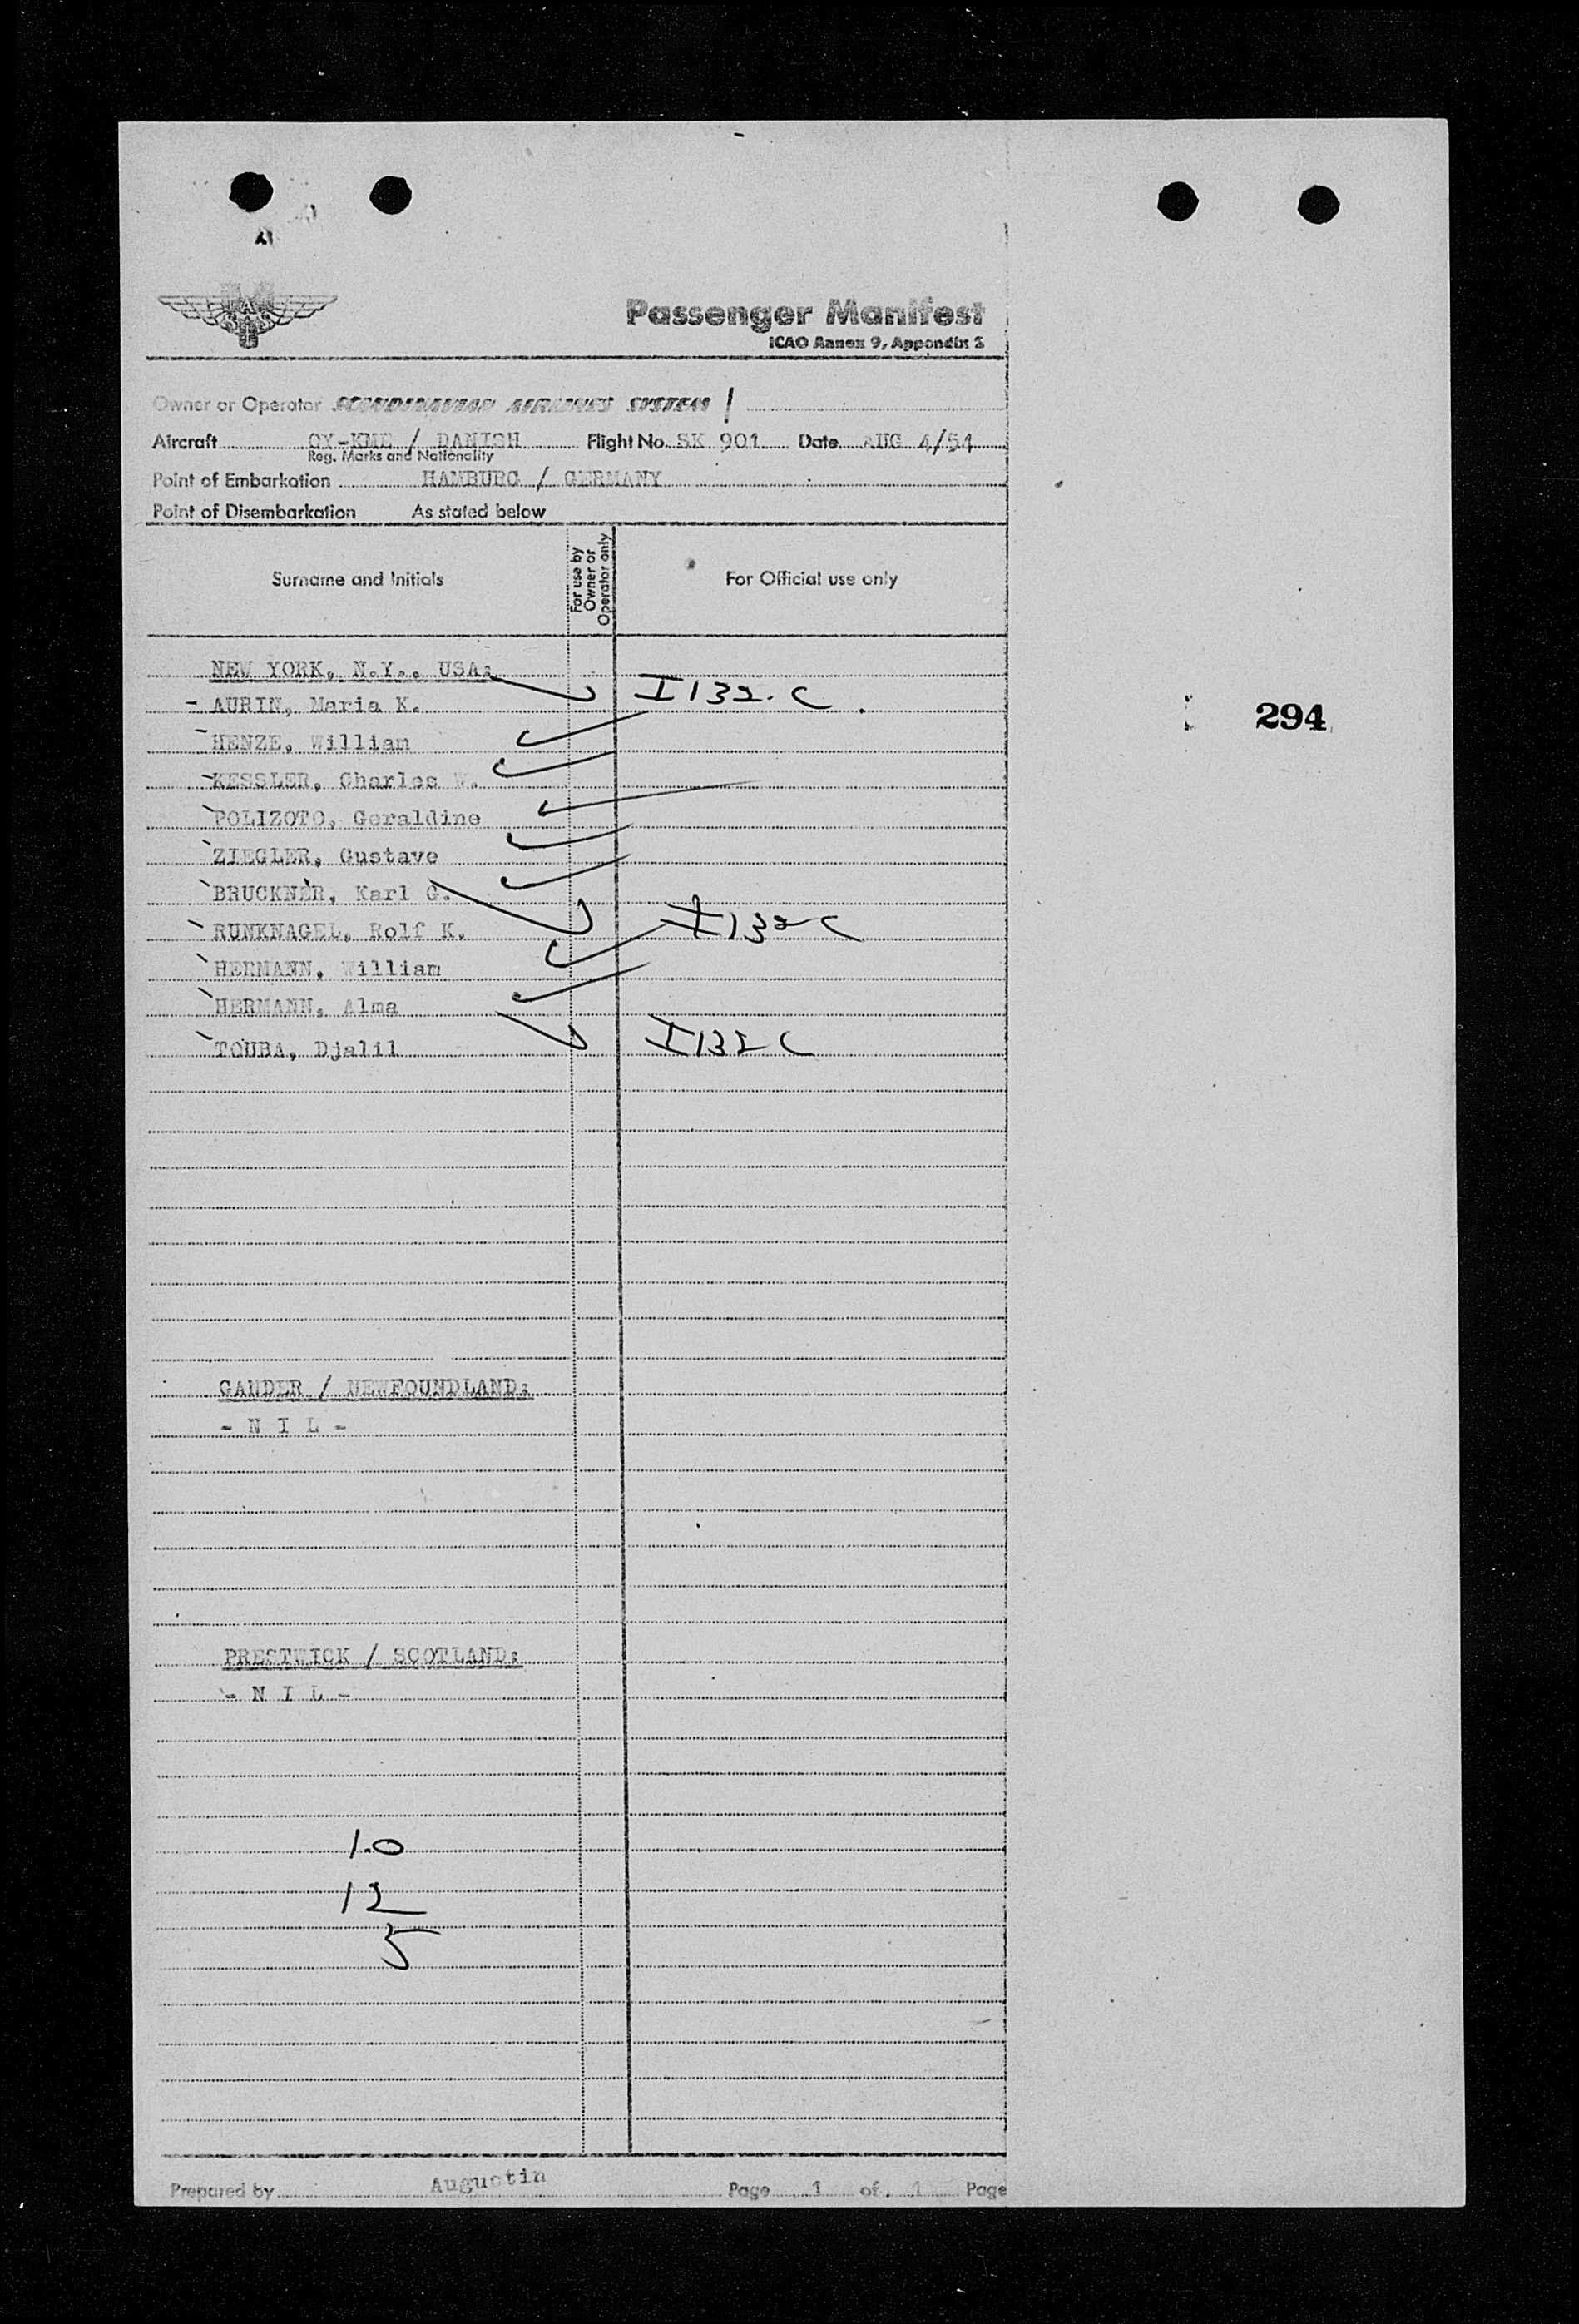 SAS
Passenger Manifest
ICAO Annex 9, Appendix 2
Owner or Operator SCANDINAVIAN AIRLINES SYSTEM /
Aircraft OY-KME / DANISH Flight No. SK 901 Date AUG 4/54
Reg. Marks and Nationality
Point of Embarkation HAMBURG / GERMANY
Point of Disembarkation As stated below
Surname and Initials
For use by Owner or Operator only
For Official use only
NEW YORK, N.Y., USA:
- AURIN, Maria K. I 132-C
HENZE, William
KESSLER, Charles W.
294
POLIZOTO, Geraldine
ZIEGLER, Gustave
BRUCKNER, Karl G.
RUNKNAGEL, Rolf K. I 132-C
HERMANN, William
HERMANN, Alma
TOUBA, Djalil I 132 C
GANDER / NEWFOUNDLAND:
- N I L -
PRESTWICK / SCOTLAND:
- N I L -
10
12
5
Prepared by Augustin Page 1 of 1 Page